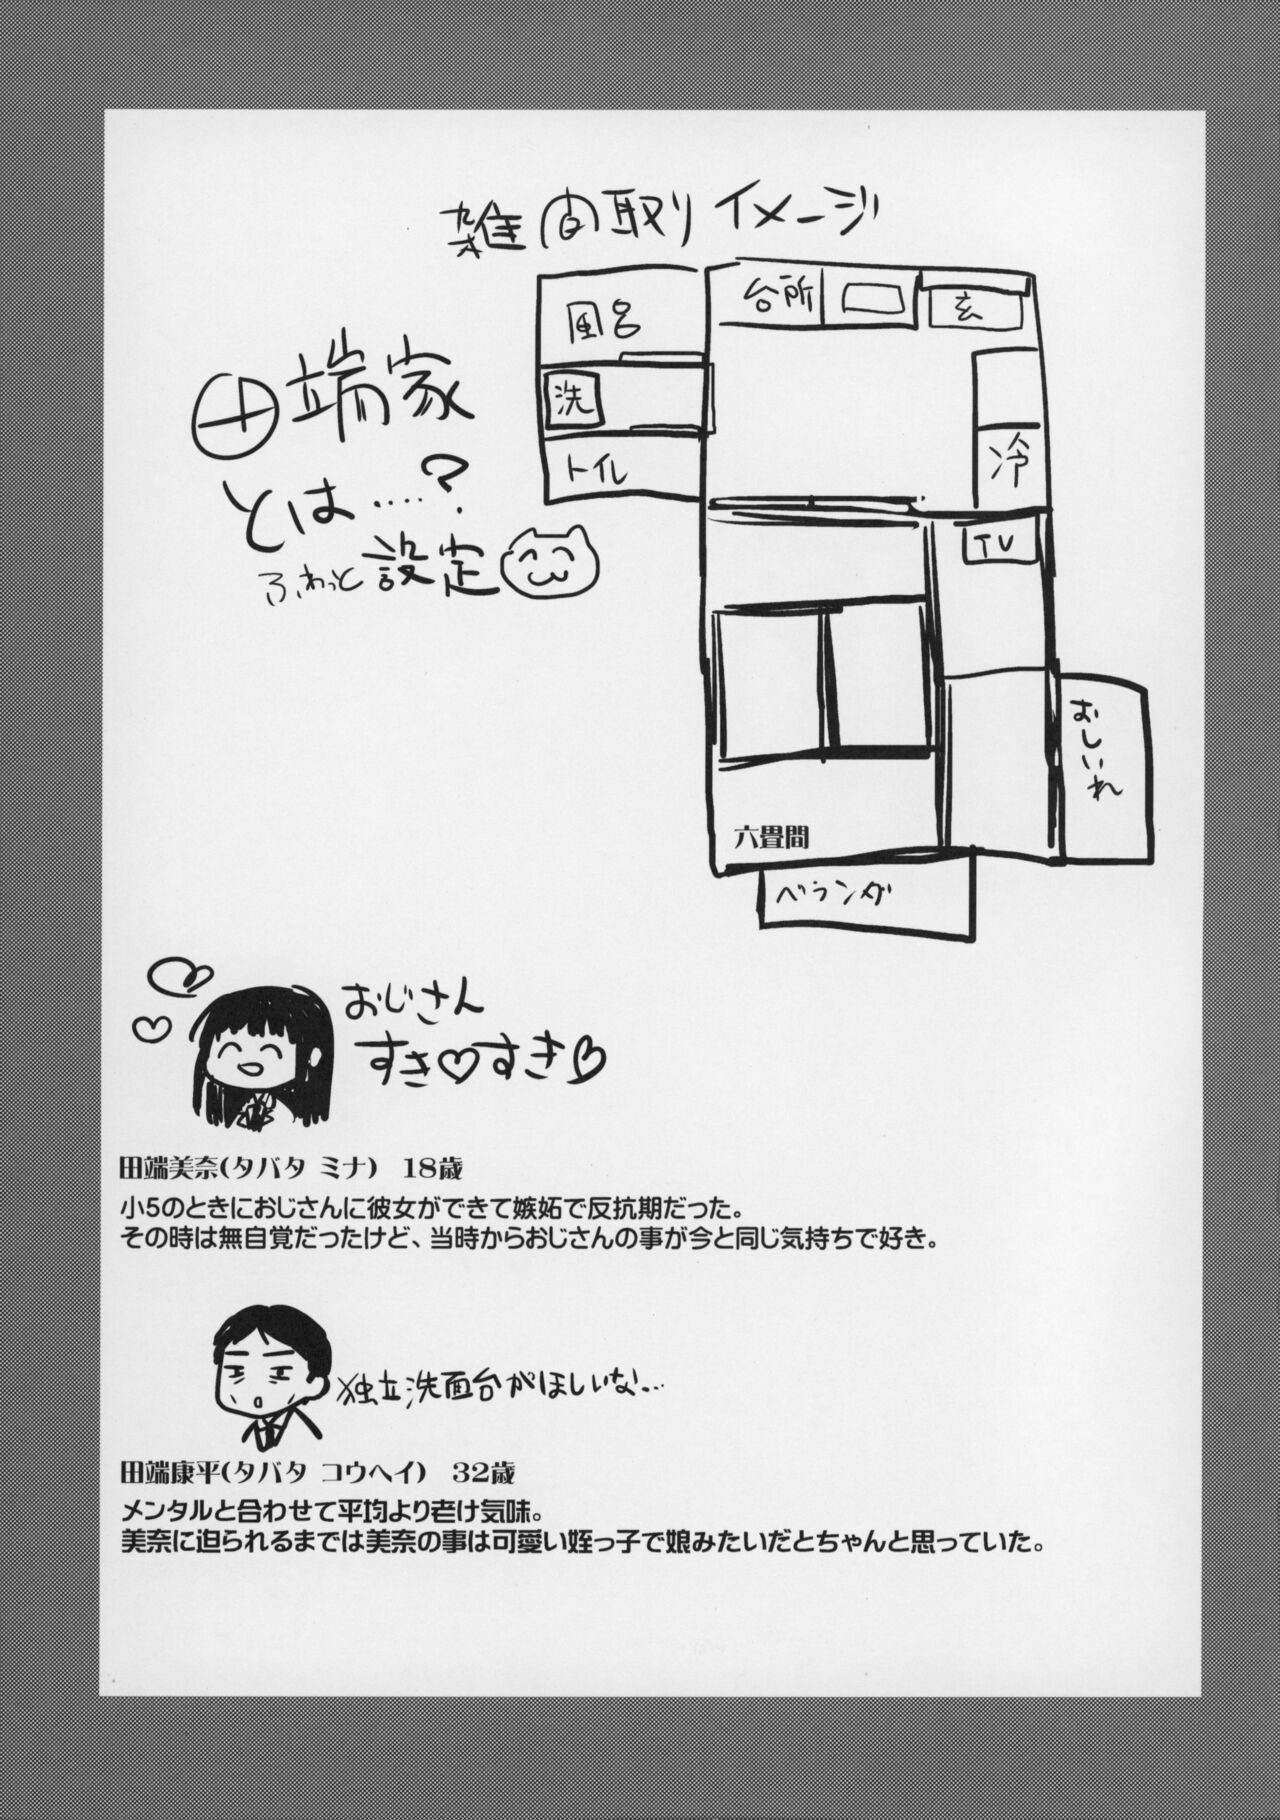 雑間取りイメージ
田端家
とは……?
ふわっと設定
風呂
台所
玄
洗
冷
トイレ
TV
おしいれ
六畳間
ベランダ
おじさん
すき♡すき♡
田端美奈(タバタ ミナ)　18歳
小5のときにおじさんに彼女ができて嫉妬で反抗期だった。
その時は無自覚だったけど、当時からおじさんの事が今と同じ気持ちで好き。
独立洗面台がほしいな…
田端康平(タバタ コウヘイ)　32歳
メンタルと合わせて平均より老け気味。
美奈に迫られるまでは美奈の事は可愛い姪っ子で娘みたいだとちゃんと思っていた。